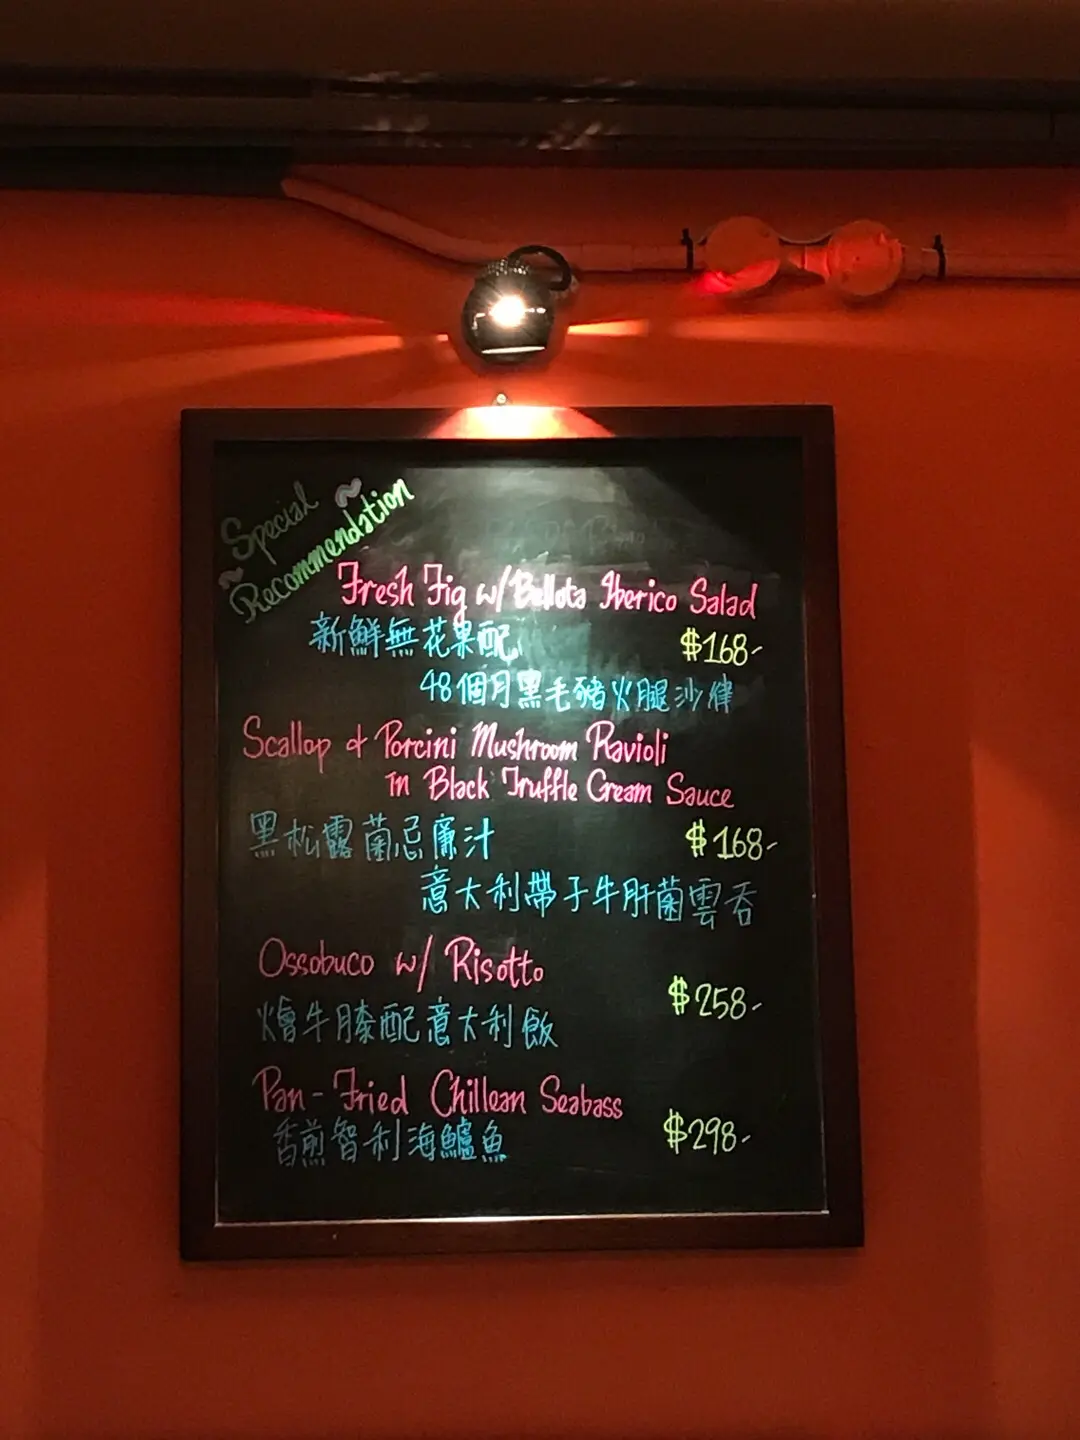 Special
Recommendation
Fresh Fig w/ Bellota Iberico Salad
新鮮無花果配
$168-
48個月黑毛豬火腿沙律
Scallop & Porcini Mushroom Ravioli
in Black Truffle Cream Sauce
黑松露菌忌廉汁
$168-
意大利帶子牛肝菌雲吞
Ossobuco w/ Risotto
$258-
燴牛膝配意大利飯
Pan-Fried Chillean Seabass
$298-
香煎智利海鱸魚